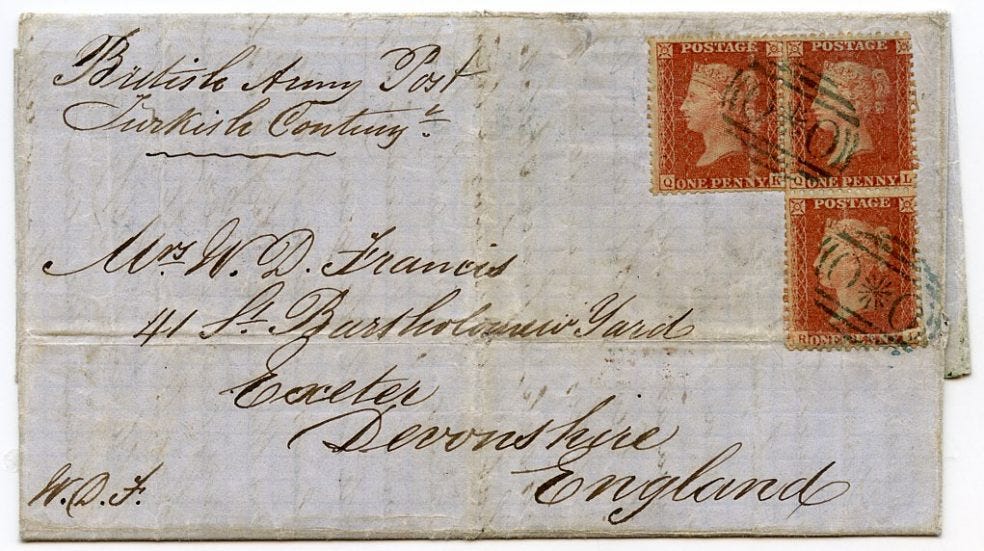 British Army Post
Turkish Conting^t.
Mrs W. D. Francis
41 St. Bartholomew Yard
Exeter
Devonshire
England
W. D. F.
POSTAGE POSTAGE
Q ONE PENNY K Q ONE PENNY L
POSTAGE
R ONE PENNY L
O*O
O*O